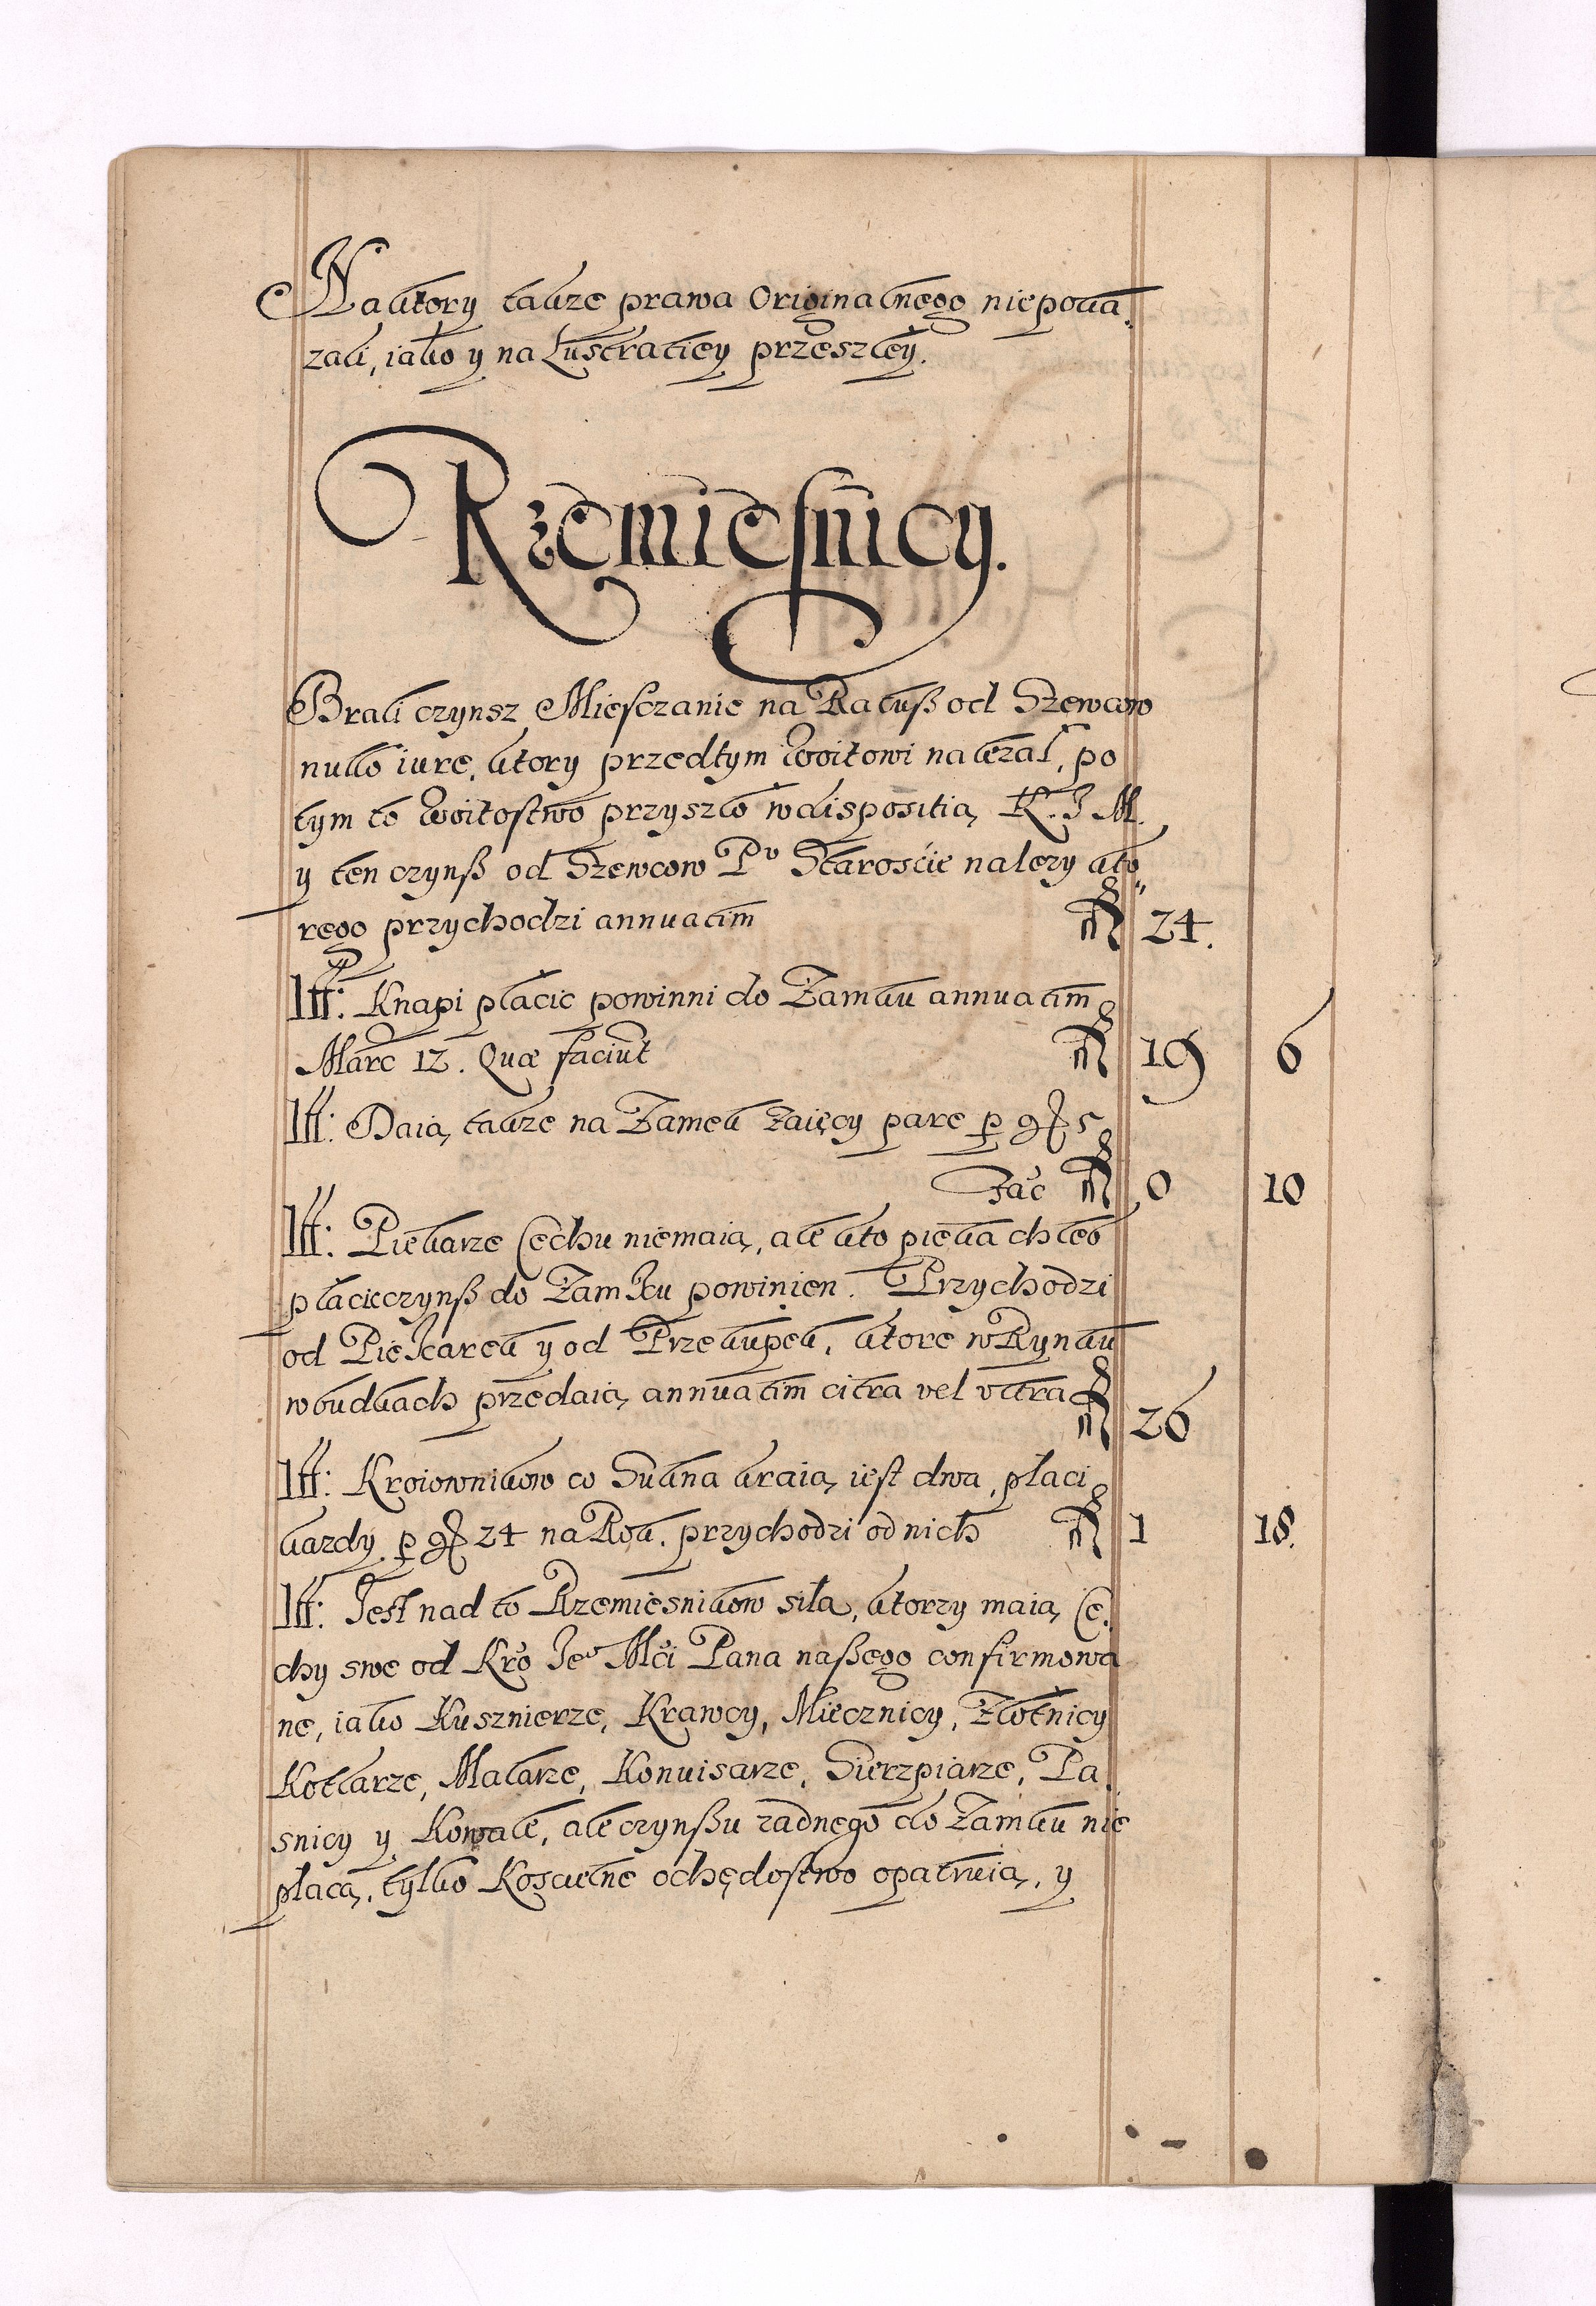 Na ktory także prawa Originalnego niepoka
zali, iako y na Lustratiey przeszley.
Rzemiesnicy.
Brali czynsz Miesczanie na Ratuß od Szewcow
nullo iure, ktory przedtym Woitowi należał, po
tym to Woitostwo przyszło w dispositią K. J M.
y ten czynß od Szewcow Pu Starośćie należy kto„
rego przychodzi annuatim fl 24.
Itt: Knapi płacic powinni do Zamku annuatim
Marc 12. Quæ faciunt fl 19 6
Itt: Daią także na Zamek Zaięcy pare p gr 5
Fac fl 0 10
Itt: Piekarze Cechu niemaią, ale kto pieka chleb
płacic czynß do Zamku powinien. Przychodzi
od Piekarek y od Przekupek, ktore w Rynku
w budkach przedaią annuatim citra vel ultra fl 26
Itt: Kroiownikow co Sukna kraią iest dwa, płaci
kazdy p gr 24 na Rok. przychodzi od nich fl 1 18.
Itt: Jest nad to Rzemiesnikow siła, ktorzy maią Ce.
chy swe od Kro Jeo Mci Pana naßego confirmowa
ne, iako Kusznierze, Krawcy, Miecznicy, Złotnicy
Kotlarze, Malarze, Konuisarze, Sierzpiarze, Pa.
snicy y Kowale, ale czynßu zadnego do Zamku nie
płacą, tylko Koscielne ochędostwo opatruią, y